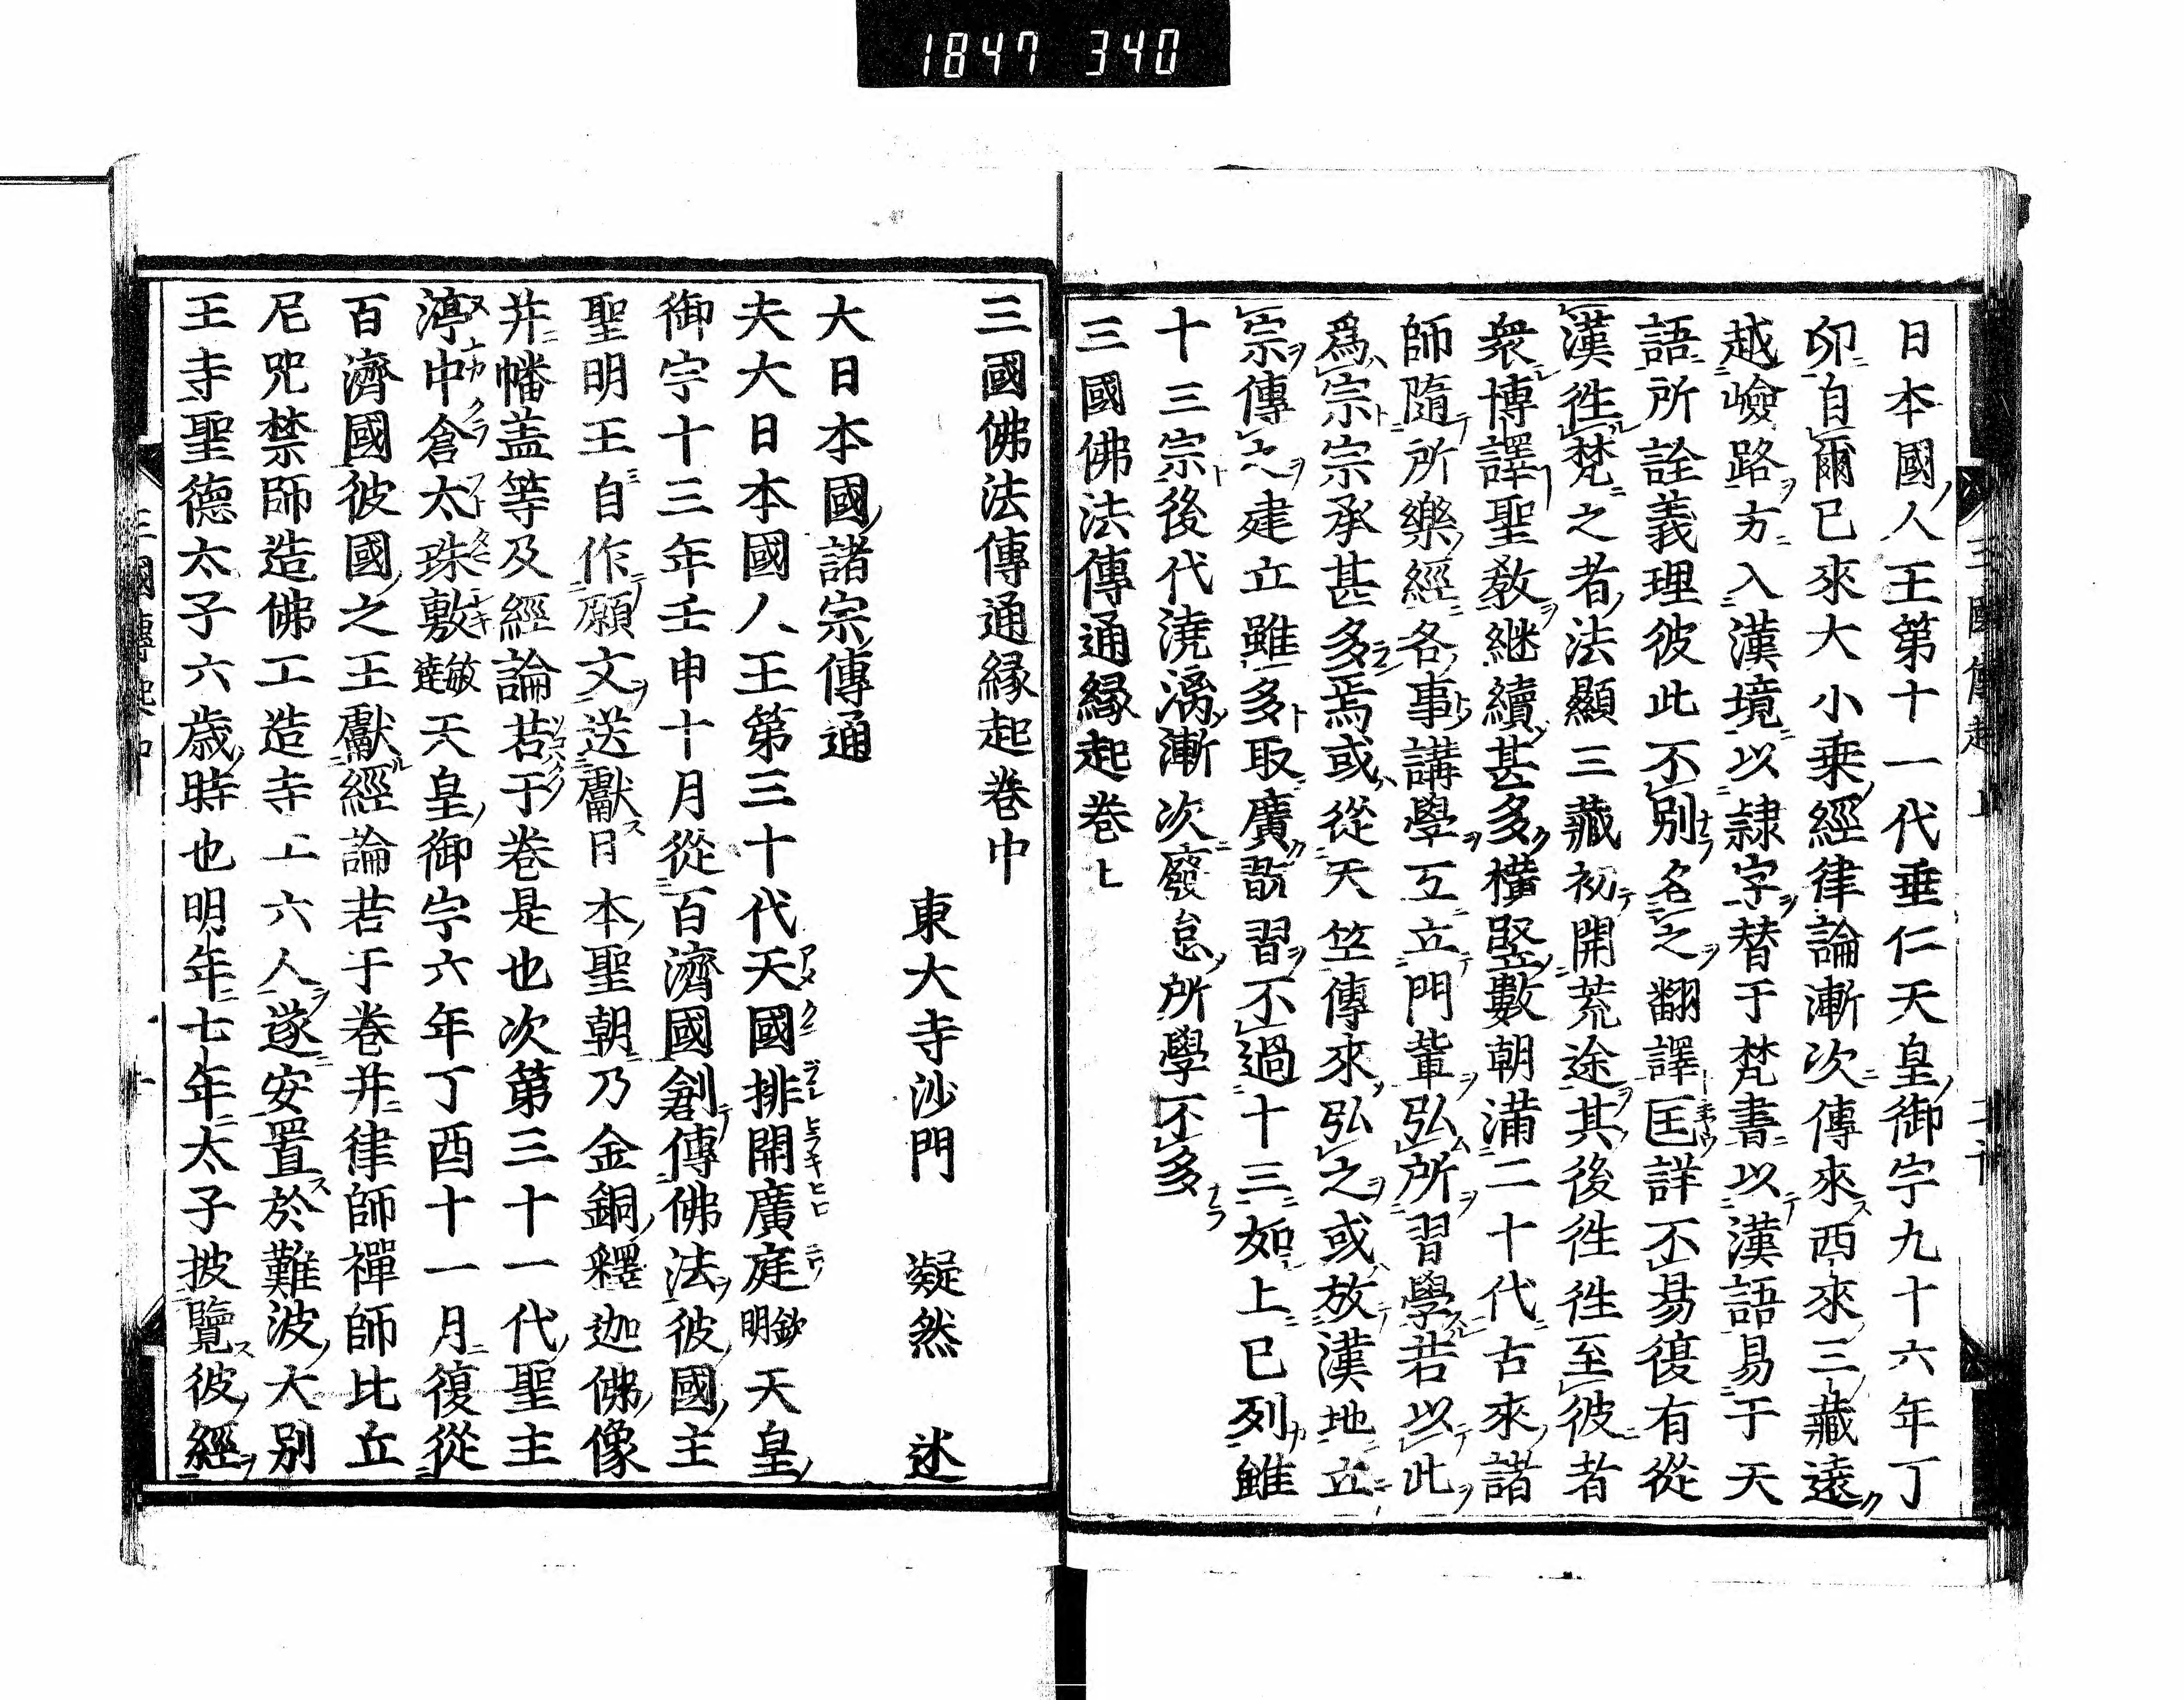 1847 340
日本國人王第十一代垂仁天皇御宇九十六年丁
卯自爾已來大小乗經律論漸次傳來西來三藏遠
越嶮路方入漢境以隷字替于梵書以漢語易于天
語所詮義理彼此不別名之翻譯匡詳不易復有從
漢徃梵之者法顯三藏初開荒途其後徃徃至彼者
衆博譯聖教継續甚多橫竪數朝満二十代古來諸
師隨所樂經各事講學互立門葷弘所習學若以此
爲宗宗承甚多焉或從天竺傳來弘之或放漢地立
宗傳之建立雖多取廣翫習不過十三如上已列雖
十三宗後代澆漓漸次廢怠所學不多
三國佛法傳通縁起巻上
三國佛法傳通縁起巻中
東大寺沙門 凝然 述
大日本國諸宗傳通
夫大日本國人王第三十代天國排開廣庭欽明天皇
御宇十三年壬申十月從百濟國創傳佛法彼國主
聖明王自作願文送獻日本聖朝乃金銅釋迦佛像
并幡盖等及經論若于巻是也次第三十一代聖主
渟中倉太珠敷敏達天皇御宇六年丁酉十一月復從
百濟國彼國之王獻經論若于巻并律師禪師比丘
尼咒禁師造佛工造寺工六人遂安置於難波大別
王寺聖德太子六歳時也明年七年太子披覽彼經